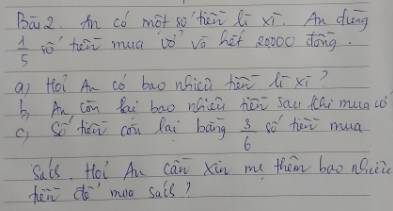 Bài 2. An có một số tiền lì xì. An dùng
1/5 số tiền mua vở vở hết 20000 đồng.
a) Hỏi An có bao nhiêu tiền lì xì?
b, An còn lại bao nhiêu tiền sau khi mua vở
c, Số tiền còn lại bằng 3/6 số tiền mua
sách. Hỏi An cần xin mẹ thêm bao nhiêu
tiền để mua sách?